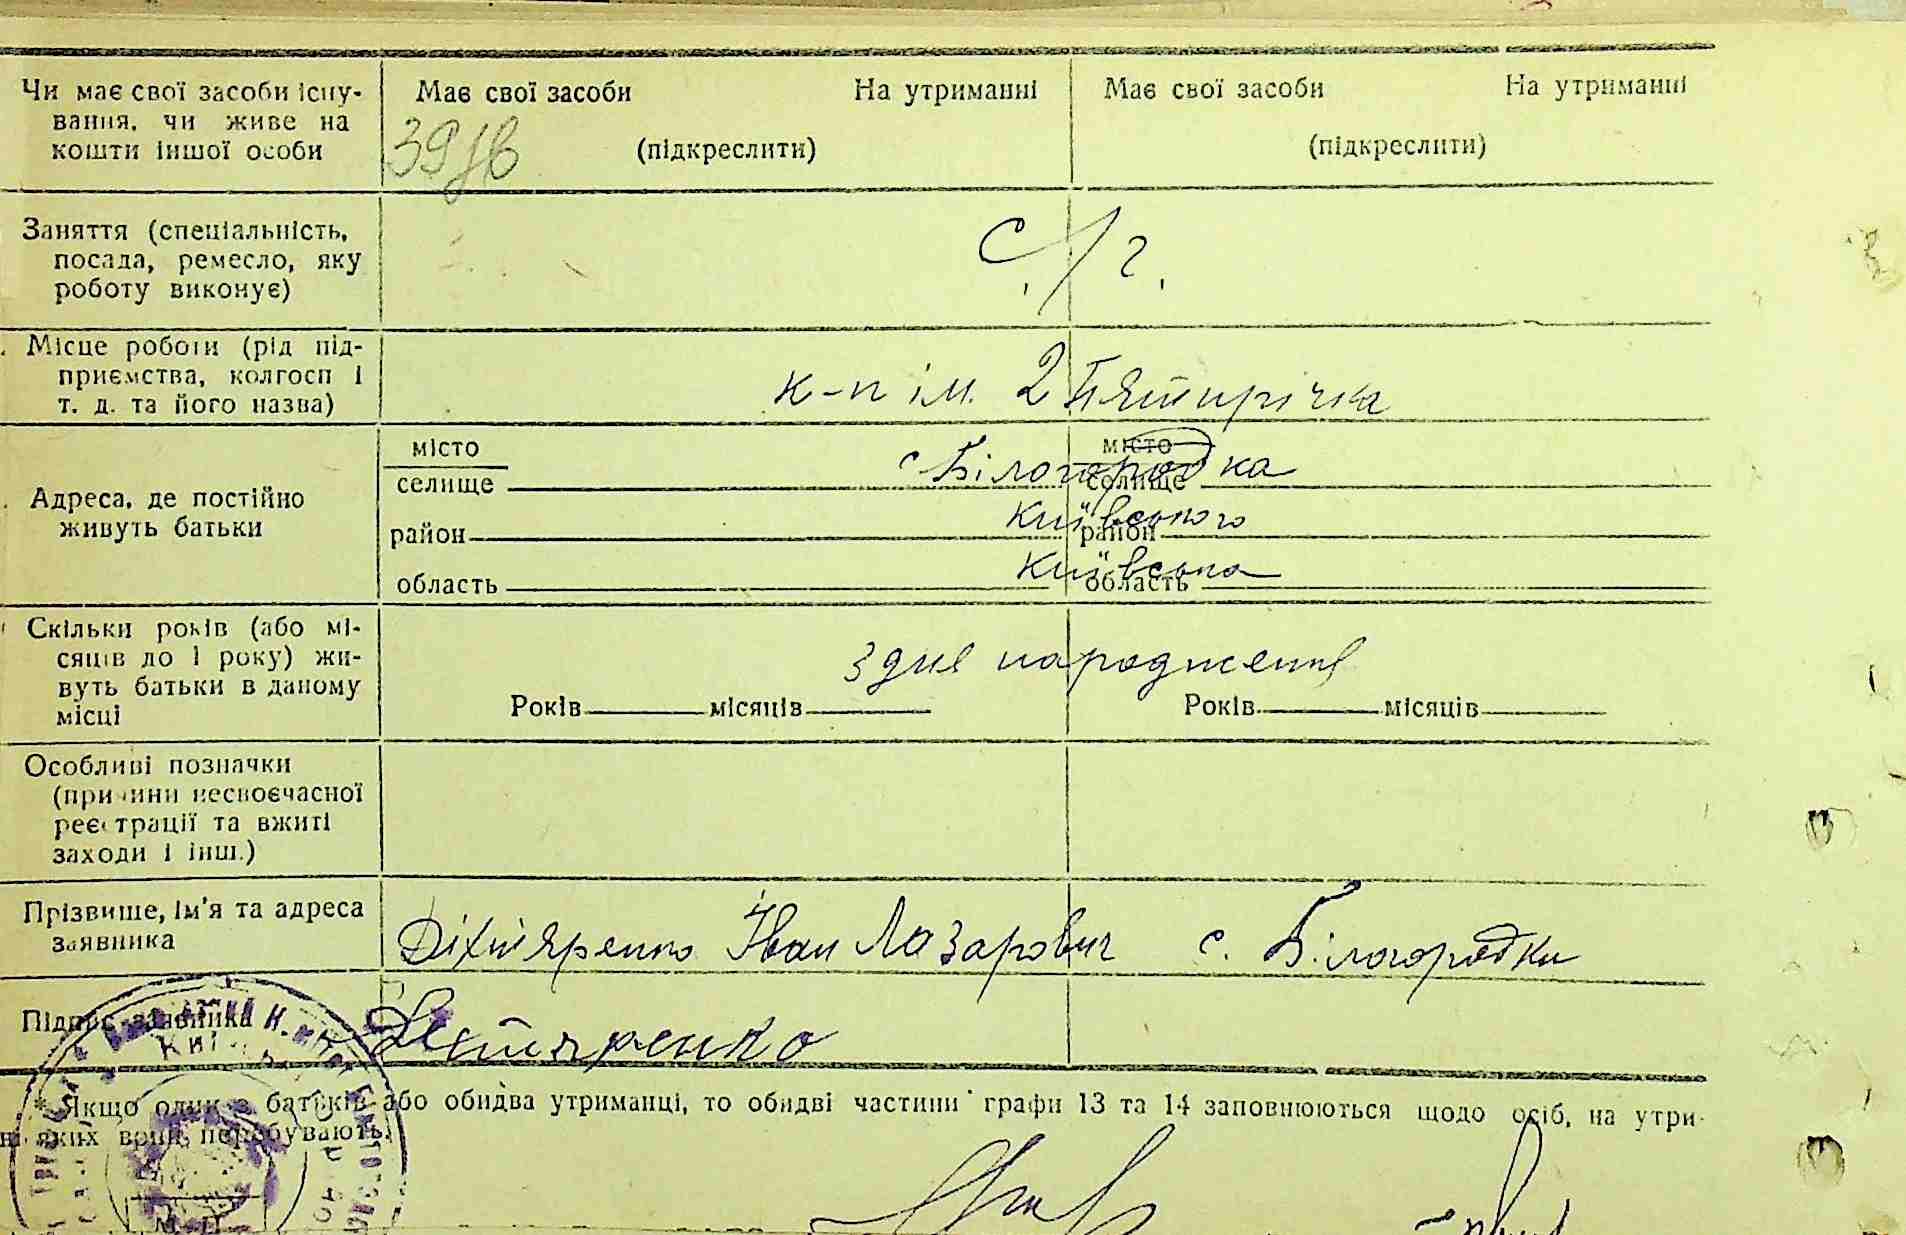 Чи має свої засоби існу-
вання, чи живе на
кошти іншої особи
Має свої засоби На утриманні
(підкреслити)
Має свої засоби На утриманні
(підкреслити)
Заняття (спеціальність,
посада, ремесло, яку
роботу виконує)
с./г.
Місце роботи (рід під-
приємства, колгосп і
т. д. та його назва)
к-п ім. 2 Пятирічка
Адреса, де постійно
живуть батьки
місто місто
селище с Білогородка селище
район Київського район
область Київська область
Скільки років (або мі-
сяців до 1 року) жи-
вуть батьки в даному
місці
з дня народження
Років місяців Років місяців
Особливі позначки
(причини несвоєчасної
реєстрації та вжиті
заходи і інш.)
Прізвище, ім'я та адреса
заявника
Діхтяренко Іван Лазарович с. Білогородки
Підпис заявника
Дехтяренко
* Якщо один з батьків або обидва утриманці, то обидві частини графи 13 та 14 заповнюються щодо осіб, на утри-
ні яких вони перебувають.